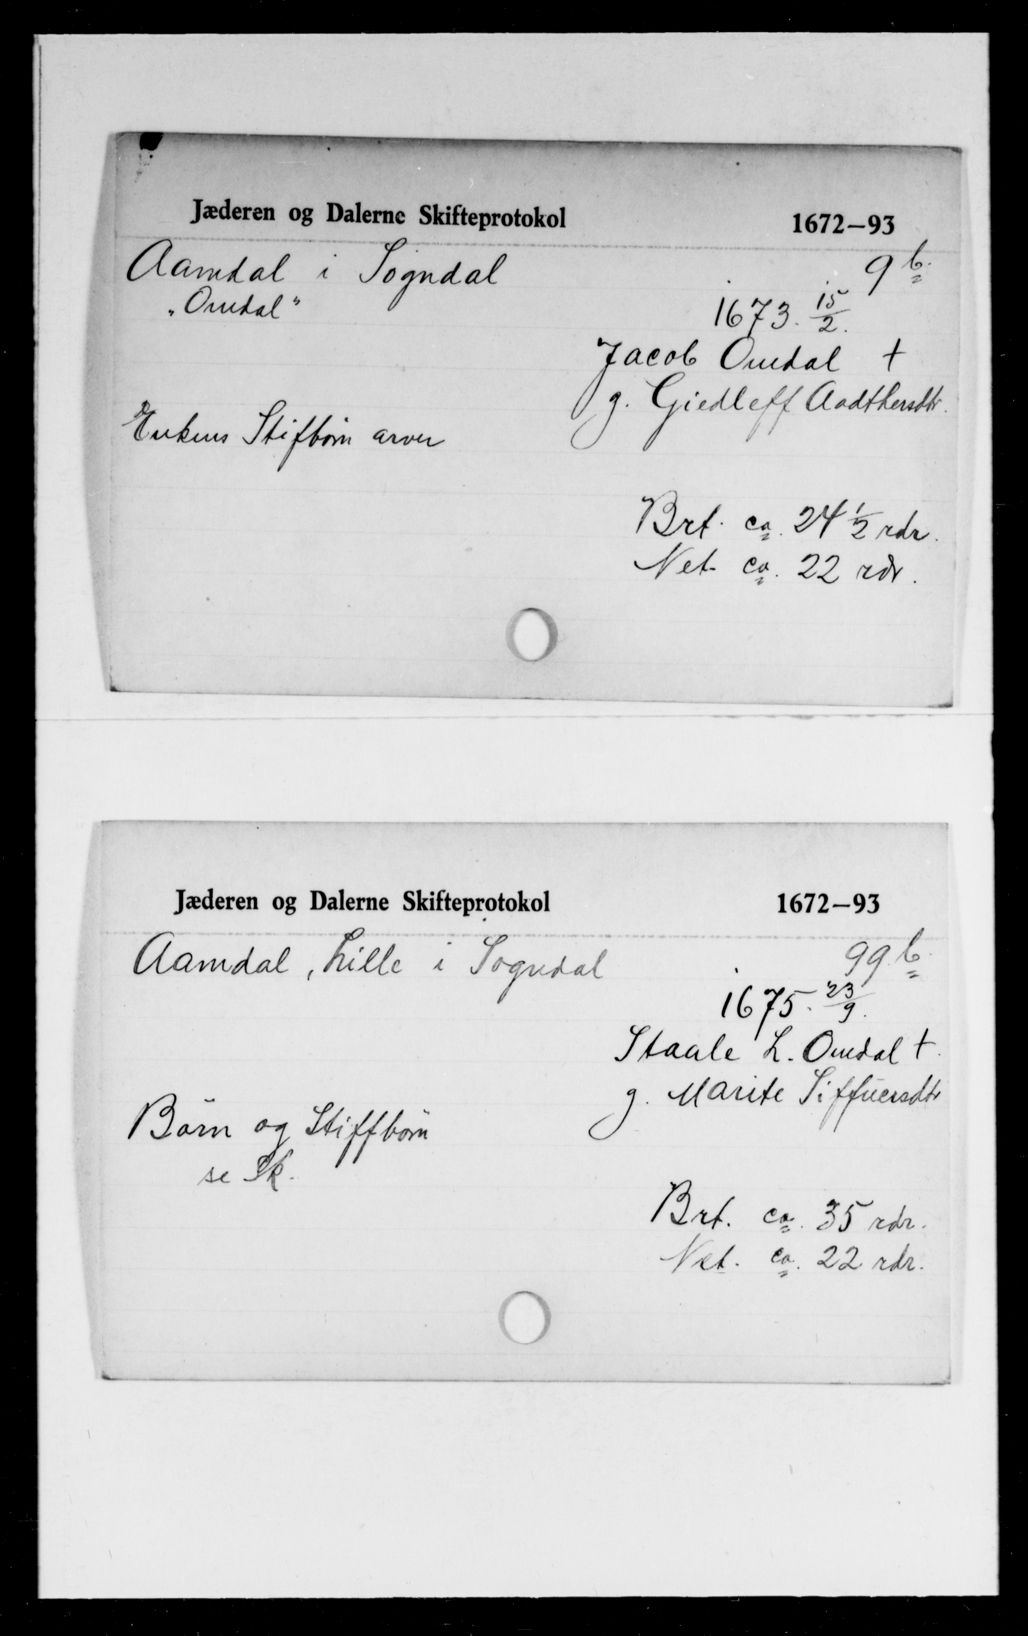 Jæderen og Dalerne Skifteprotokol 1672–93
Aamdal i Sogndal 9 b.
"Omdal" 1673. 15/2.
Jacob Omdal †
g. Giedleff Aadthersdtr.
Enkens Stifbörn arver
Brt. ca. 24 1/2 rdr.
Net. ca. 22 rdr.
Jæderen og Dalerne Skifteprotokol 1672–93
Aamdal, Lille i Sogndal 99 b.
1675. 23/9.
Staale L. Omdal †.
g. Marite Siffuersdtr
Börn og Stiffbörn
se Sk.
Brt. ca. 35 rdr.
Net. ca. 22 rdr.